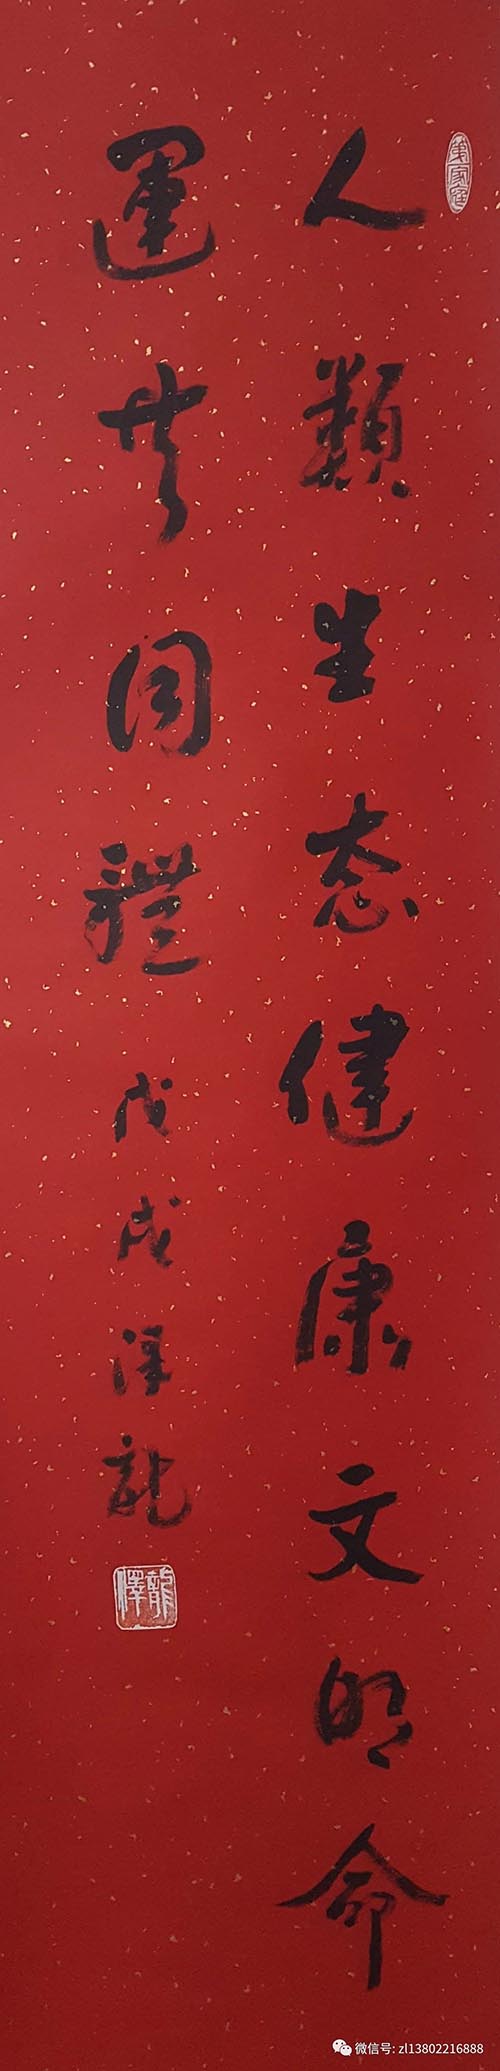 人類生态健康文明命
運共同體
戊戌澤龍
龍澤
微信号: zl13802216888